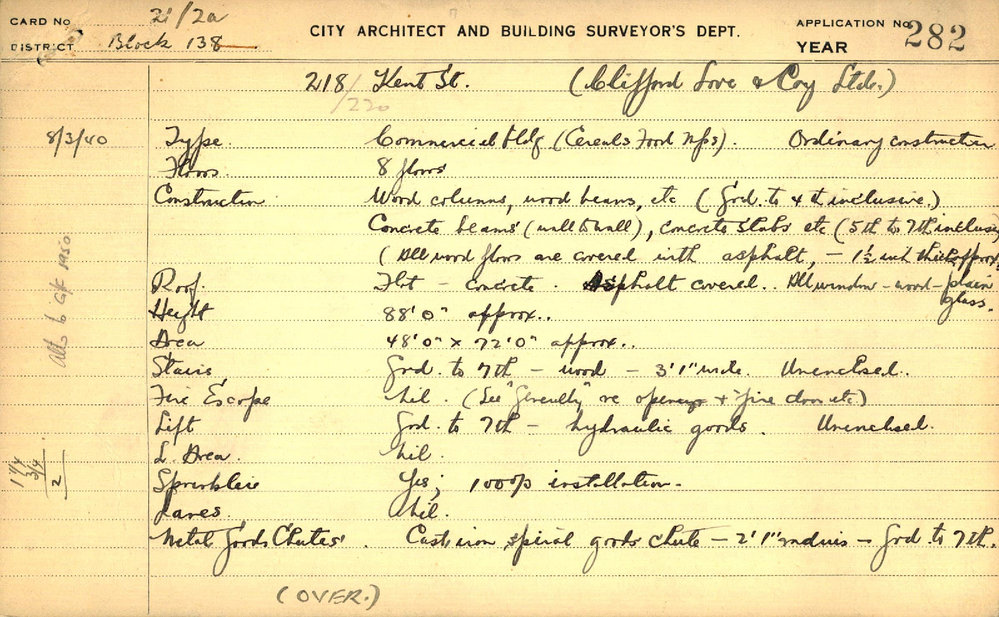 CARD No 21/2a
DISTRICT Block 138
CITY ARCHITECT AND BUILDING SURVEYOR'S DEPT.
APPLICATION No 282
YEAR
218 Kent St. (Clifford Love & Coy Ltd.)
/220
8/3/40 Type. Commercial bldg (Cereals Food Mfs). Ordinary construction
Floors. 8 floors
Construction Wood columns, wood beams, etc (Grd. to 4th inclusive.)
Concrete beams (wall to wall), concrete slabs etc (5th to 7th inclusive
(All wood floors are covered with asphalt, - 1½ inch thick approx.
Roof. Flat - concrete. Asphalt covered. All window - wood - plain glass.
Height 88'0" approx..
Area 48'0" x 72'0" approx..
Stairs Grd. to 7th - wood - 3'1" wide. Unenclsed.
Fire Escape Nil. (See "Generally" re openings & fire doors etc)
Lift Grd. to 7th - hydraulic goods. Unenclsed.
L. Area. Nil.
Sprinkler Yes; 100% installation.
Lanes. Nil.
Metal Goods Chutes. Cast iron spiral goods chute - 2'1" radius - Grd. to 7th.
(OVER.)
Alts to G/f 1950
1 1/4
3/4
2